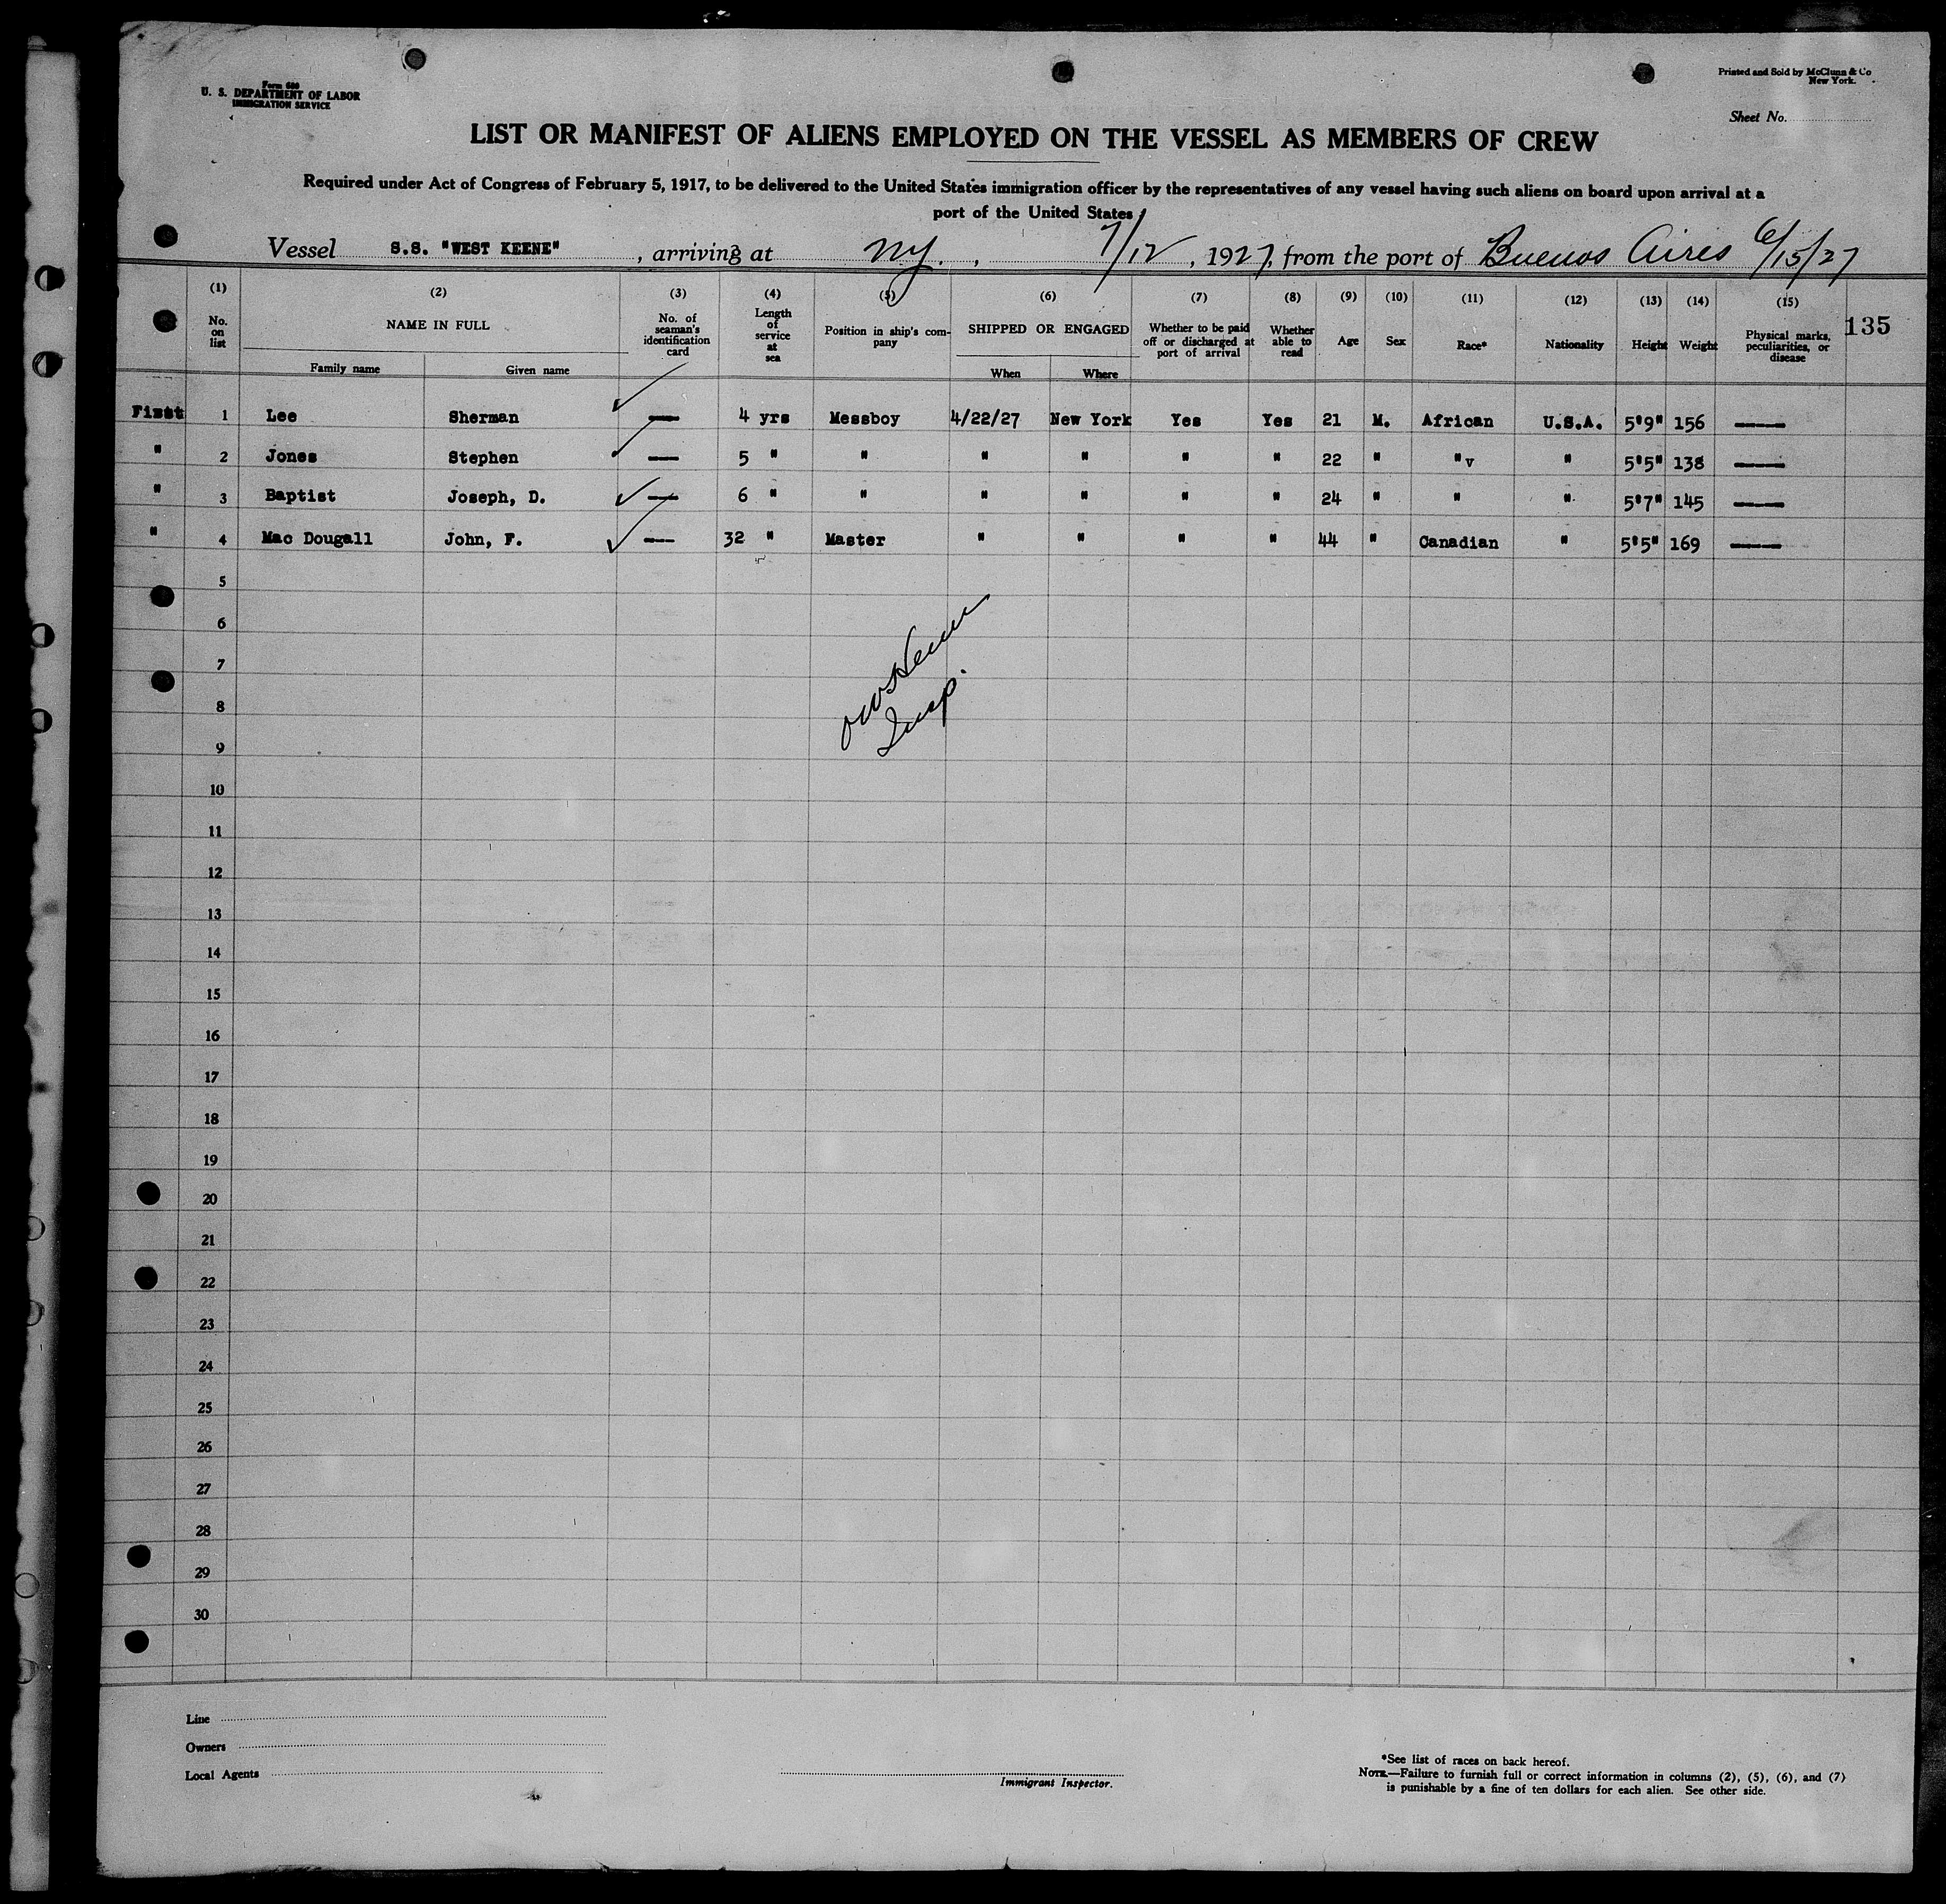 Form 680
U. S. DEPARTMENT OF LABOR
IMMIGRATION SERVICE
Printed and Sold by McClunn & Co
New York.
Sheet No.
LIST OR MANIFEST OF ALIENS EMPLOYED ON THE VESSEL AS MEMBERS OF CREW
Required under Act of Congress of February 5, 1917, to be delivered to the United States immigration officer by the representatives of any vessel having such aliens on board upon arrival at a
port of the United States
Vessel S.S. "WEST KEENE", arriving at N.Y., 7/12, 1927, from the port of Buenos Aires 6/15/27
(1) (2) (3) (4) (5) (6) (7) (8) (9) (10) (11) (12) (13) (14) (15)
No. on list NAME IN FULL No. of seaman's identification card Length of service at sea Position in ship's company SHIPPED OR ENGAGED Whether to be paid off or discharged at port of arrival Whether able to read Age Sex Race* Nationality Height Weight Physical marks, peculiarities, or disease 135
Family name Given name When Where
First 1 Lee Sherman — 4 yrs Messboy 4/22/27 New York Yes Yes 21 M. African U.S.A. 5'9" 156 —
" 2 Jones Stephen — 5 " " " " " " 22 " "v " 5'5" 138 —
" 3 Baptist Joseph, D. — 6 " " " " " " 24 " " " 5'7" 145 —
" 4 Mac Dougall John, F. — 32 " Master " " " " 44 " Canadian " 5'5" 169 —
5
6
7
Insp.
8
9
10
11
12
13
14
15
16
17
18
19
20
21
22
23
24
25
26
27
28
29
30
Line
Owners
Local Agents
Immigrant Inspector.
*See list of races on back hereof.
NOTE.—Failure to furnish full or correct information in columns (2), (5), (6), and (7)
is punishable by a fine of ten dollars for each alien. See other side.